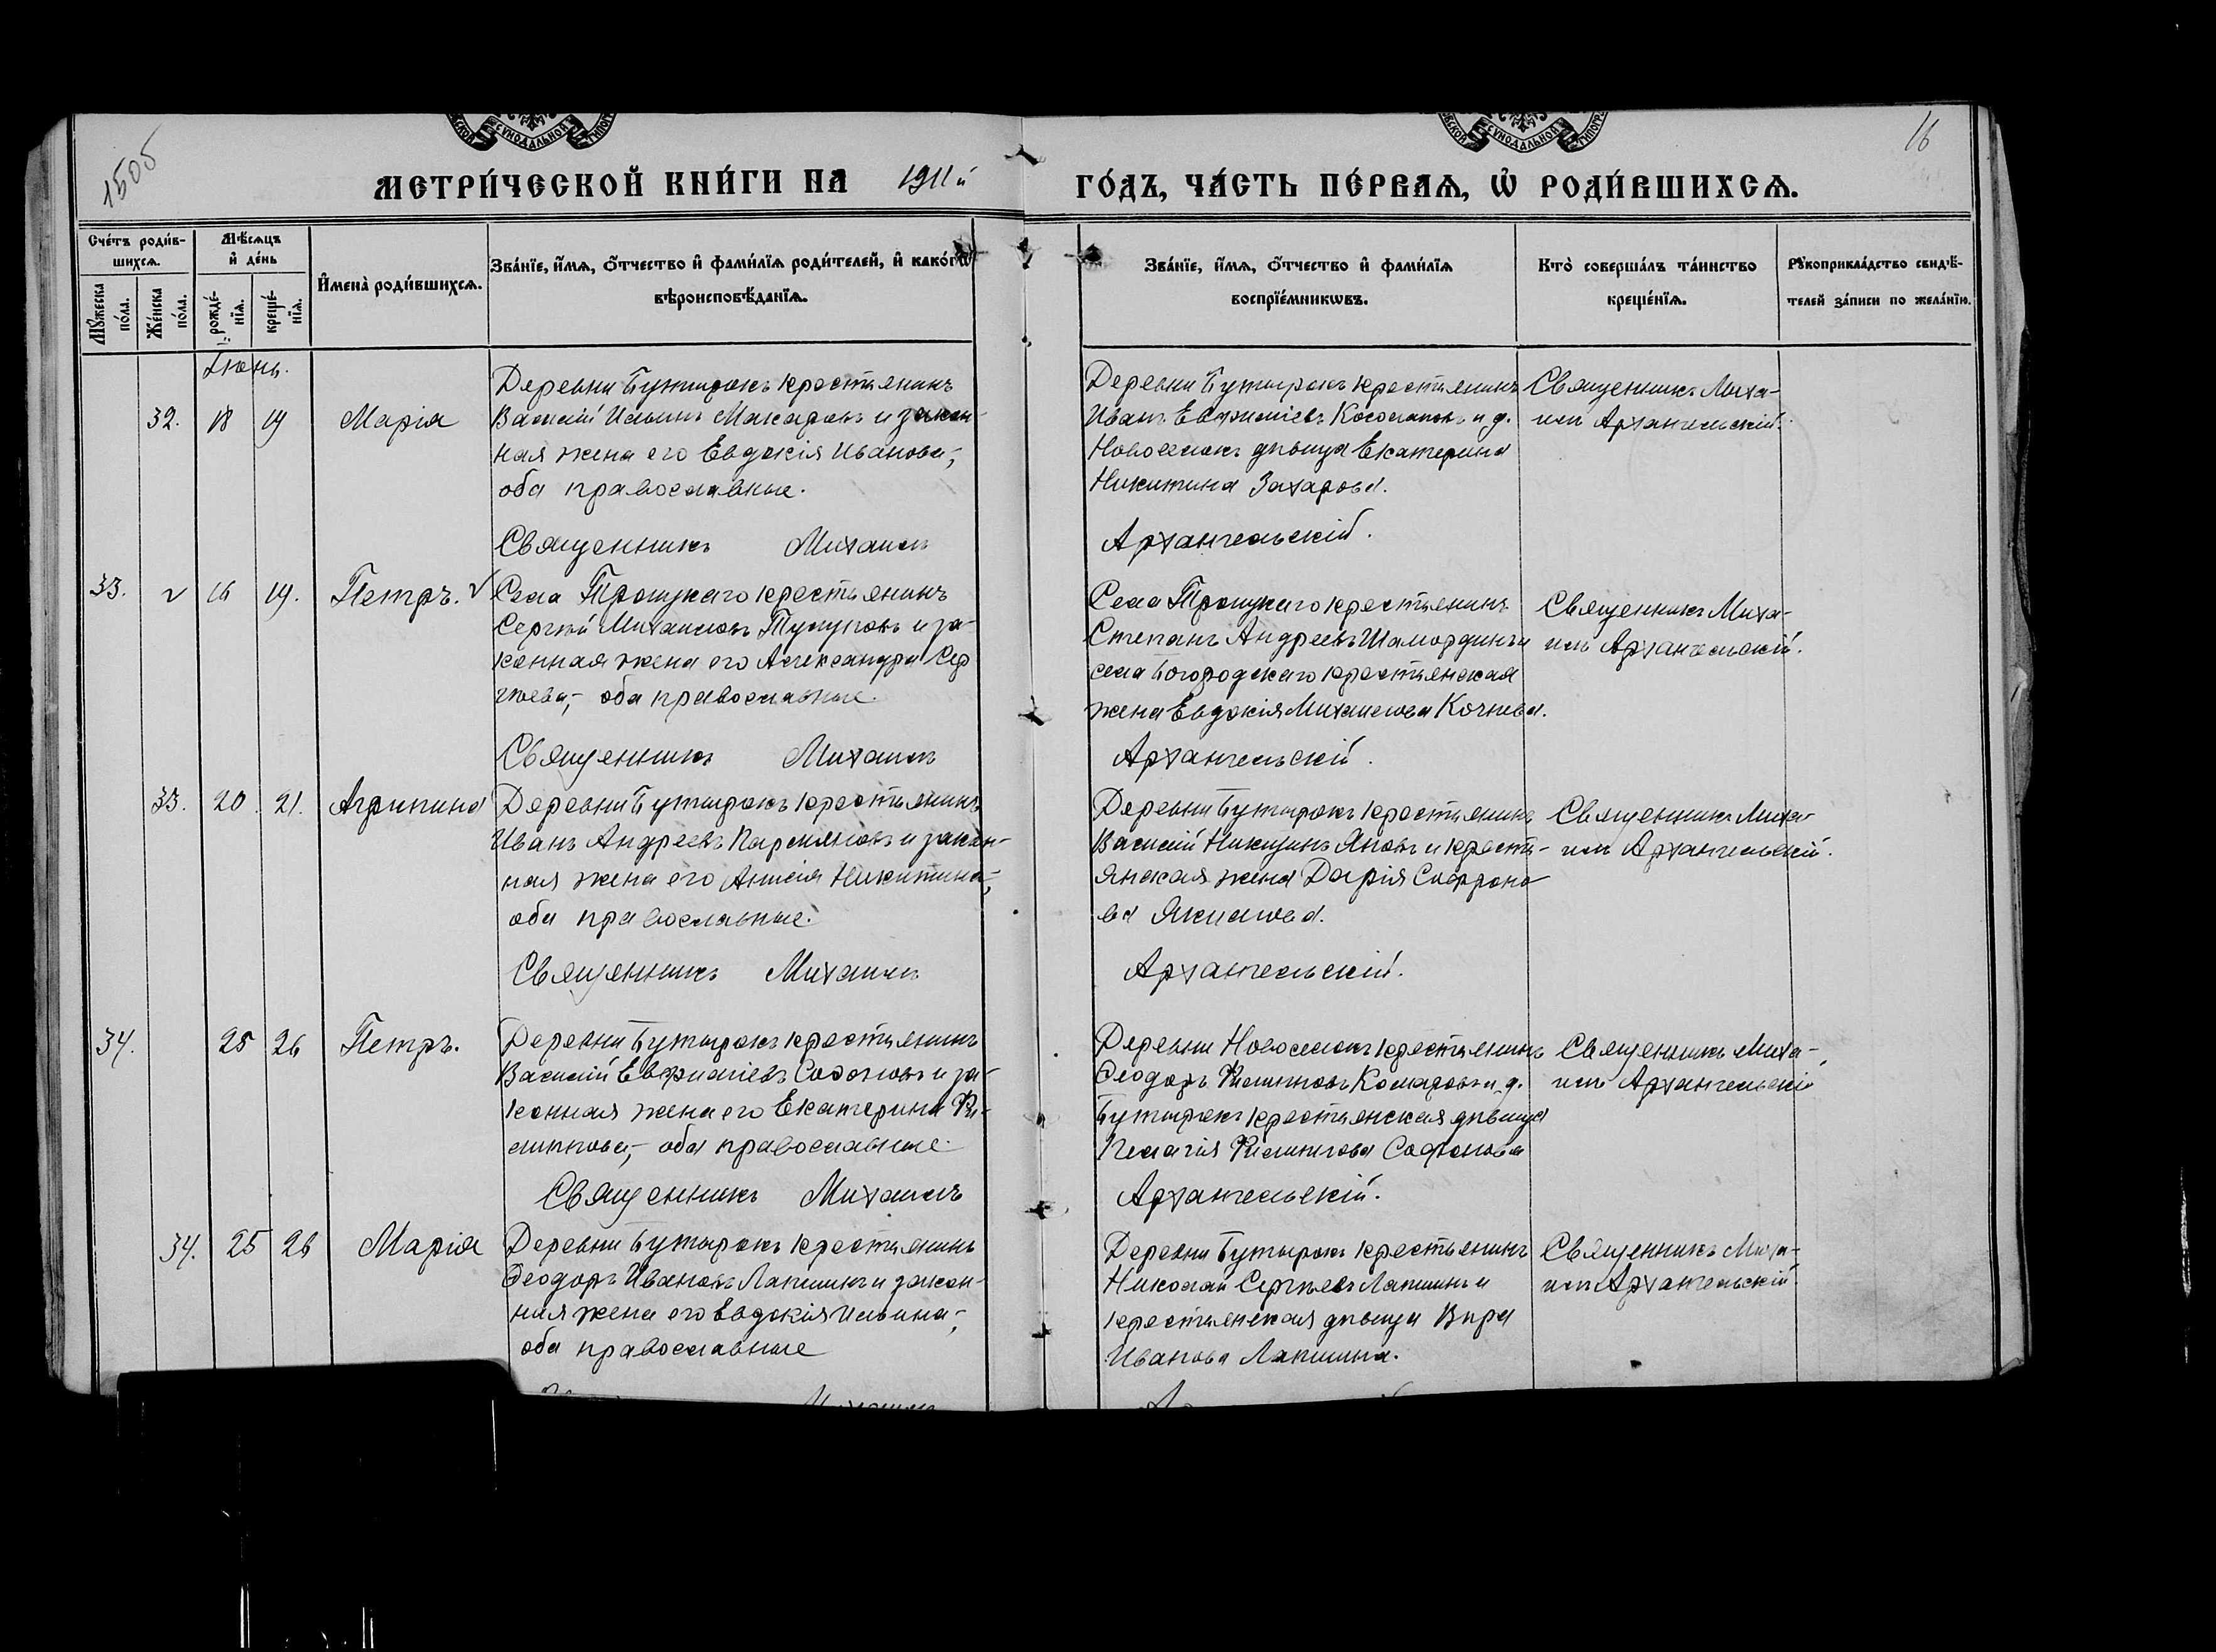 СѴНОДАЛЬНОЙ
СѴНОДАЛЬНОЙ
1505
16
МЕТРИ́ЧЕСКОЙ КНИ́ГИ НА 1911й
ГО́ДЪ, ЧА́СТЬ ПЕ́РВАѦ, Ѽ РОДИ́ВШИХСѦ.
Сче́тъ роди́в-
шихсѧ.
Мꙋ́жеска по́ла.
Же́нска по́ла.
Мѣ́сѧцъ
и҆ де́нь
рожде́-
нїѧ.
креще́-
нїѧ.
И҆мена̀ роди́вшихсѧ.
Зва́нїе, и҆́мѧ, ѻ҆́тчество и҆ фами́лїѧ роди́телей, и҆ како́гѡ
вѣроисповѣ́данїѧ.
Зва́нїе, и҆́мѧ, ѻ҆́тчество и҆ фами́лїѧ
воспрїе́мникѡвъ.
Кто̀ соверша́лъ та́инство
креще́нїѧ.
Рꙋкоприкла́дство свидѣ́-
телей за́писи по жела́нїю.
Іюнь.
32. 18 19 Марія
Деревни Бутырокъ крестьянинъ
Василій Ильинъ Макаровъ и закон-
ная жена его Евдокія Иванова,-
оба православные.
Деревни Бутырокъ крестьянинъ
Иванъ Евфиміевъ Косолаповъ и д.
Новоселокъ дѣвица Екатерина
Никитина Захарова.
Священникъ Миха-
илъ Архангельскій.
Священникъ Михаилъ Архангельскій.
33. 16 19. Петръ.
Села Троицкаго крестьянинъ
Сергѣй Михаиловъ и за-
конная жена его Александра Сер
гѣева,- оба православные.
Села Троицкаго крестьянинъ
Степанъ Андреевъ Шамординъ и
села Богородскаго крестьянская
жена Евдокія Михаилова Кочнева.
Священникъ Миха-
илъ Архангельскій.
Священникъ Михаилъ Архангельскій.
33. 20. 21. Агрипина
Деревни Бутырокъ крестьянинъ
Иванъ Андреевъ и закон-
ная жена его Анисія Никитина,-
оба православные.
Деревни Бутырокъ крестьянинъ
Василій Никитинъ Яновъ и кресть-
янская жена Дарія Сафроно
ва
Священникъ Миха-
илъ Архангельскій.
Священникъ Михаилъ Архангельскій.
34. 25 26 Петръ.
Деревни Бутырокъ крестьянинъ
Василій Сафоновъ и за-
конная жена его Екатерина Фи-
липпова,- оба православные.
Деревни Новоселокъ крестьянинъ
Ѳеодоръ Филипповъ Комаровъ и д.
Бутырокъ крестьянская дѣвица
Пелагія Филиппова Сафонова
Священникъ Миха-
илъ Архангельскій
Священникъ Михаилъ Архангельскій.
34. 25 26 Марія
Деревни Бутырокъ крестьянинъ
Ѳеодоръ Ивановъ Лапшинъ и закон-
ная жена его Евдокія Ильина,-
оба православные
Деревни Бутырокъ крестьянинъ
Николай Сергѣевъ Лапшинъ и
крестьянская дѣвица Вѣра
Иванова Лапшина.
Священникъ Миха-
илъ Архангельскій.